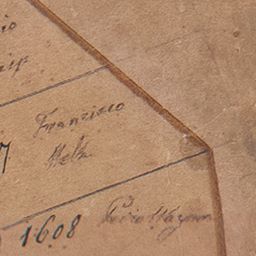 io
Francisco
7
Melz
1608
Pedro Wagner